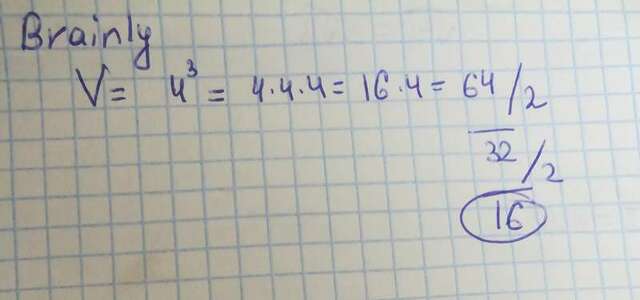 Brainly
V = 4³ = 4·4·4 = 16·4 = 64 /2
32 /2
16